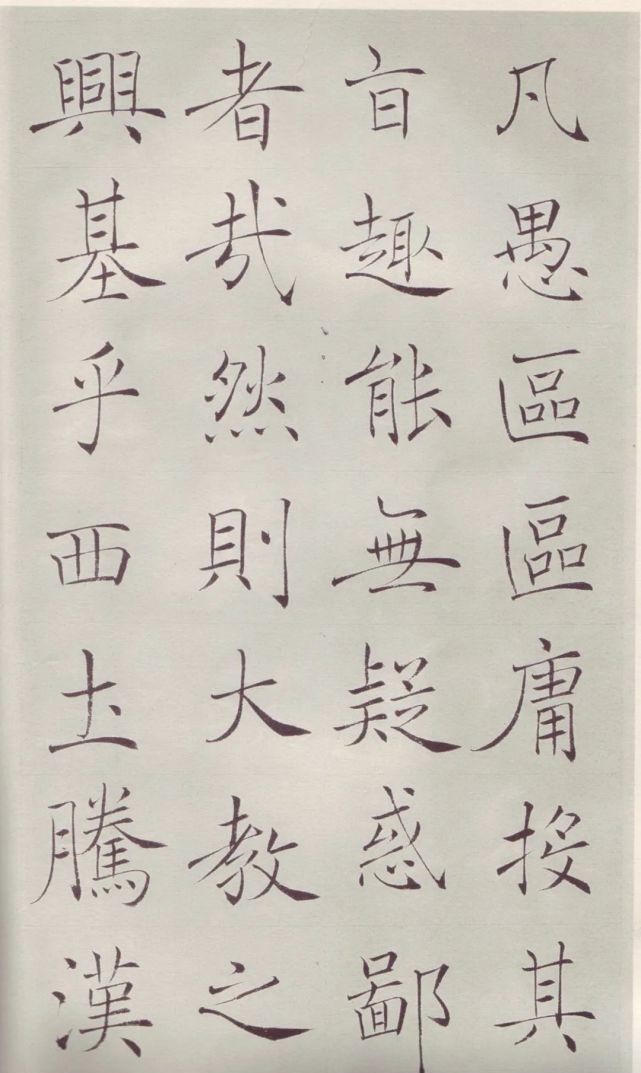 凡愚區區庸投其
㫖趣能無疑惑鄙
者㢤然則大教之
興基乎西圡騰漢